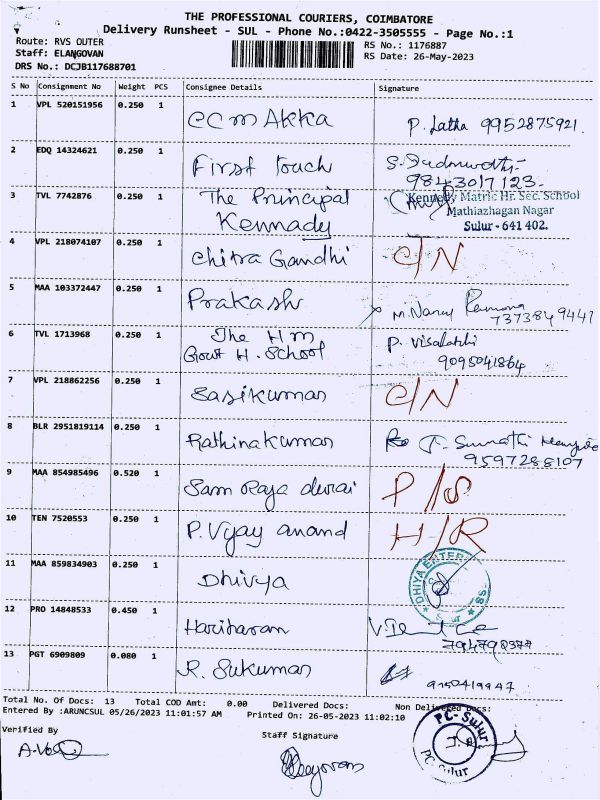 THE PROFESSIONAL COURIERS, COIMBATORE
Delivery Runsheet - SUL - Phone No.:0422-3505555 - Page No.:1
Route: RVS OUTER RS No.: 1176887
Staff: ELANGOVAN RS Date: 26-May-2023
DRS No.: DCJB117688701
S No Consignment No Weight PCS Consignee Details Signature
1 VPL 520151956 0.250 1 CCM Akka P. Latha 9952875921.
2 EDQ 14324621 0.250 1 First Touch
9843017123-
3 TVL 7742876 0.250 1 The Principal Kennedy Matric Hr. Sec. School
Kennady Mathiazhagan Nagar
Sulur - 641 402.
4 VPL 218074107 0.250 1 Chitra Gandhi C/N
5 MAA 103372447 0.250 1 Prakash
7373849441
6 TVL 1713968 0.250 1 The HM P. Visalatchi
Govt H. School 9095041864
7 VPL 218862256 0.250 1 Sasikumar C/N
8 BLR 2951819114 0.250 1 Rathinakumar
9597288107
9 MAA 854985496 0.520 1 Sam Raja durai P/S
10 TEN 7520553 0.250 1 P. Vijay anand H/R
11 MAA 859834903 0.250 1 Dhivya DHIYA ENTER
Sulur
12 PRO 14848533 0.450 1 Hariharan
13 PGT 6909809 0.080 1 R. Sukumar 9150419947
Total No. Of Docs: 13 Total COD Amt: 0.00 Delivered Docs: Non Delivered Docs:
Entered By :ARUNCSUL 05/26/2023 11:01:57 AM Printed On: 26-05-2023 11:02:10
Verified By Staff Signature
PC- Sulur
PC- Sulur